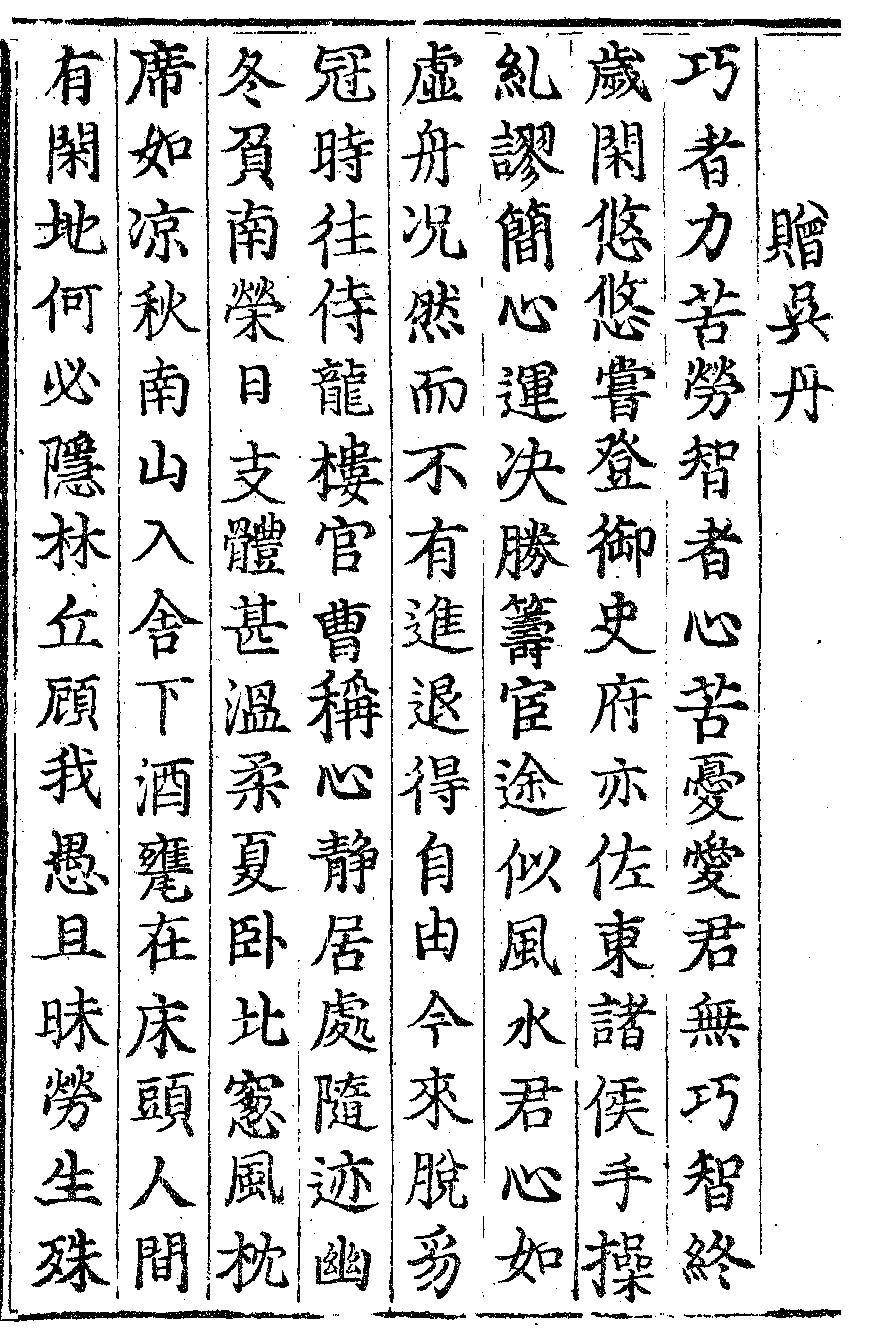 贈吳丹
巧者力苦勞智者心苦憂愛君無巧智終
歲閑悠悠嘗登御史府亦佐東諸侯手操
糺謬簡心運决勝籌宦途似風水君心如
虛舟况然而不有進退得自由今來脫豸
冠時往侍龍樓官曹稱心静居處隨迹幽
冬負南榮日支體甚溫柔夏卧北窓風枕
席如凉秋南山入舍下酒甕在床頭人間
有閑地何必隱林丘顧我愚且昧勞生殊